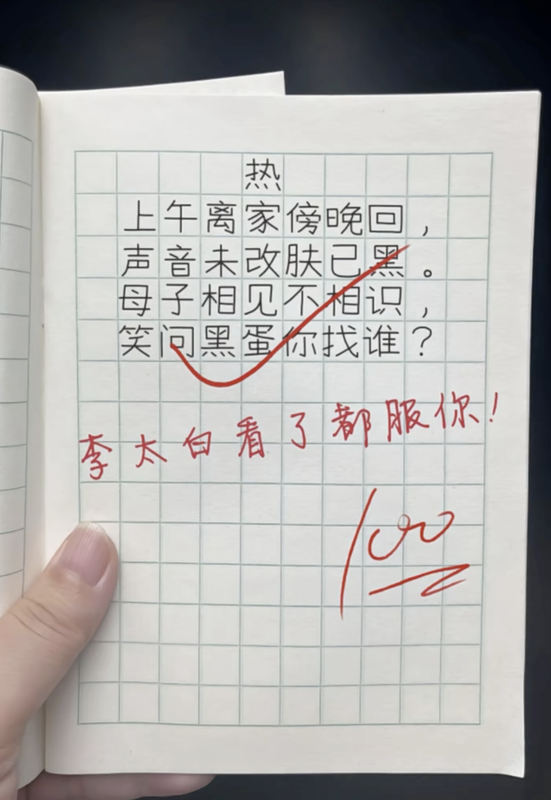 热
上午离家傍晚回，
声音未改肤已黑。
母子相见不相识，
笑问黑蛋你找谁？
李太白看了都服你！
100